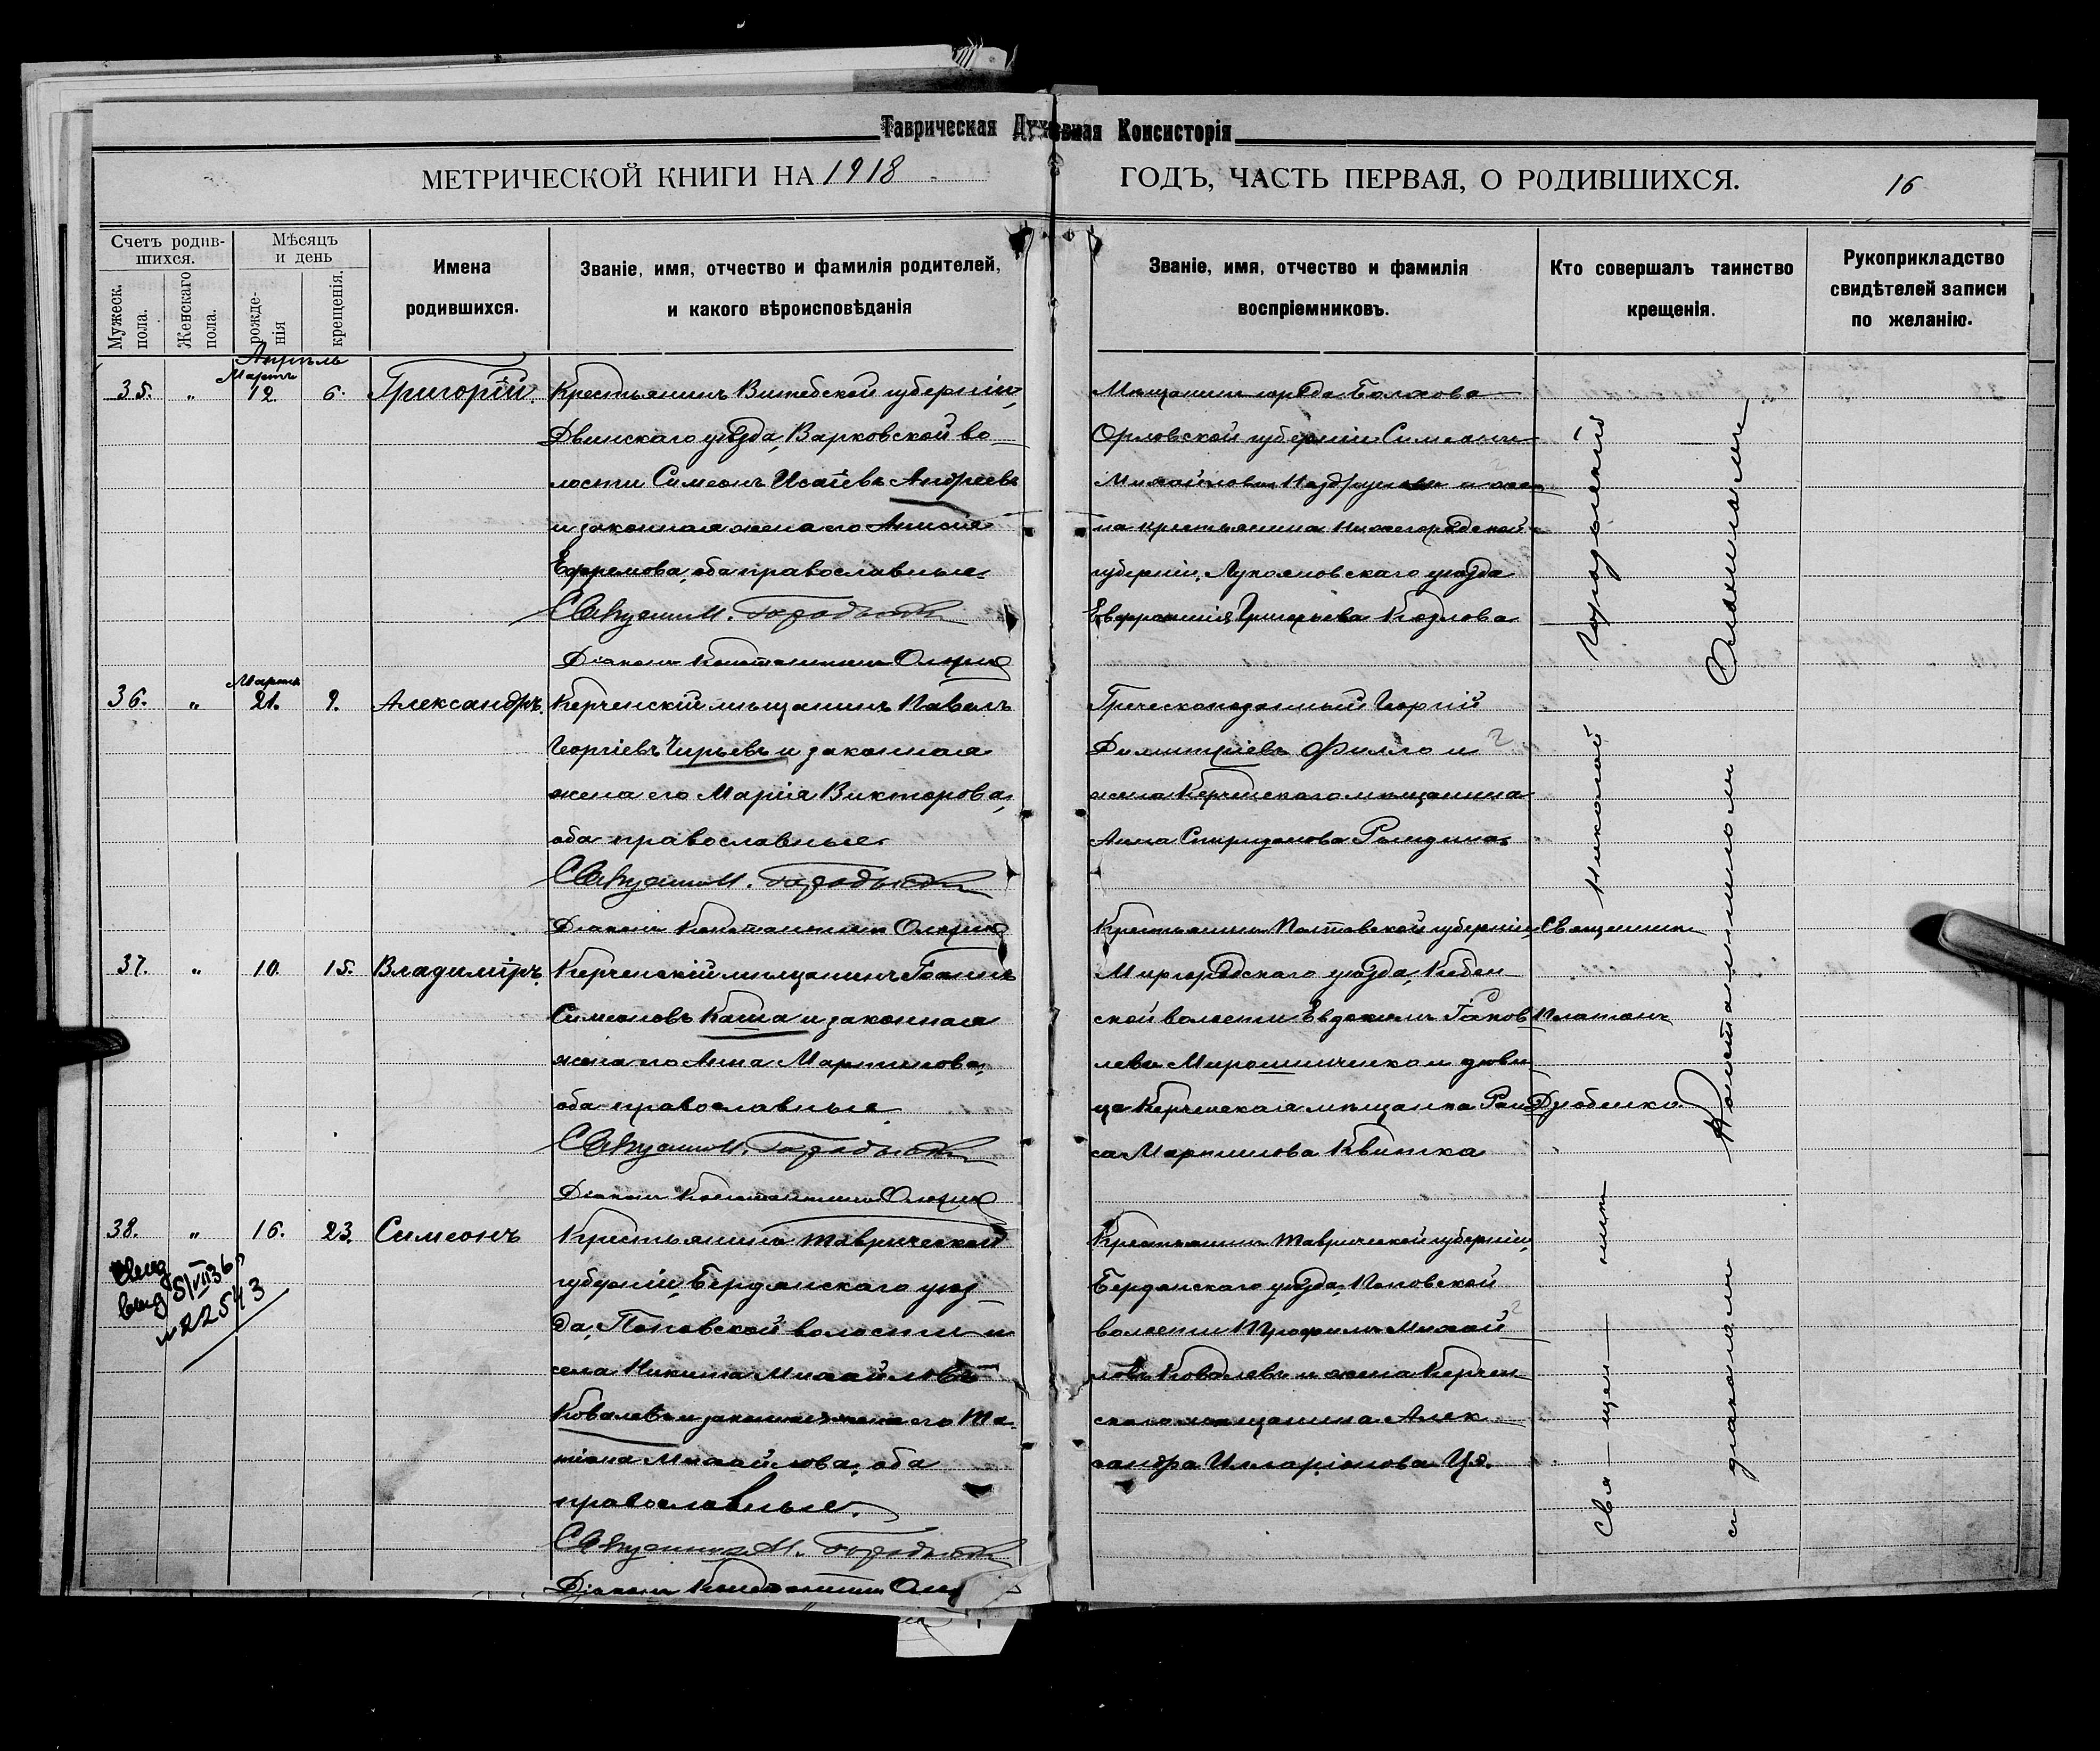 Таврическая Духовная Консисторія
МЕТРИЧЕСКОЙ КНИГИ НА 1918 ГОДЪ, ЧАСТЬ ПЕРВАЯ, О РОДИВШИХСЯ.
16
Счетъ родив-
шихся.
Мужеск. пола.
Женскаго пола.
Мѣсяцъ
и день
рожде-
нія
крещенія.
Имена
родившихся.
Званіе, имя, отчество и фамилія родителей,
и какого вѣроисповѣданія
Званіе, имя, отчество и фамилія
воспріемниковъ.
Кто совершалъ таинство
крещенія.
Рукоприкладство
свидѣтелей записи
по желанію.
Апрѣль
Мартъ
35. " 12 6. Григорій.
Крестьянинъ Витебской губерніи,
Двинскаго уѣзда, Варковской во-
лости Симеонъ Исаіевъ Андреевъ
и законная жена его
Ефремова, оба православные.
Діаконъ Константинъ
Мѣщанинъ города Болхова
Орловской губерніи Симеонъ
Михайловъ и же-
на крестьянина Нижегородской
губерніи, Лукояновскаго уѣзда
Евфросинія Григорьева Козлова
Мартъ
36. " 21. 9. Александръ.
Керченскій мѣщанинъ Павелъ
Георгіевъ Чирьевъ и законная
жена его Марія Викторова,
оба православные.
Діаконъ Константинъ
Греческоподанный Георгій
Димитріевъ Филло и
жена Керченскаго мѣщанина
Анна Спиридонова
37. " 10. 15. Владиміръ.
Керченскій мѣщанинъ Іоаннъ
Симеоновъ Каша и законная
жена его Анна Мартинова,
оба православные
Діаконъ Константинъ
Крестьянинъ Полтавской губерніи,
Миргородскаго уѣзда,
ской волости Евдокимъ Іаков
левъ Мирошниченко и дѣви
ца Керченская мѣщанка Раи
са Мартинова Квитка
Священникъ
Платонъ
Дзюбенко.
38. " 16. 23. Симеонъ
5/VIII 36
№ 22543
Крестьянинъ Таврической
губерніи, Бердянскаго уѣз-
да, Поповской волости и
села Никита Михайловъ
Ковалевъ и законная жена его Та-
тіана Михайлова, оба
православные.
Діаконъ Константинъ
Крестьянинъ Таврической губерніи,
Бердянскаго уѣзда, Поповской
волости Трофимъ Михай
ловъ Ковалевъ и жена Керчен
скаго мѣщанина Алек-
сандра Илларіонова
Свя-щен-никъ Николай Городыскій
съ діакономъ Константиномъ